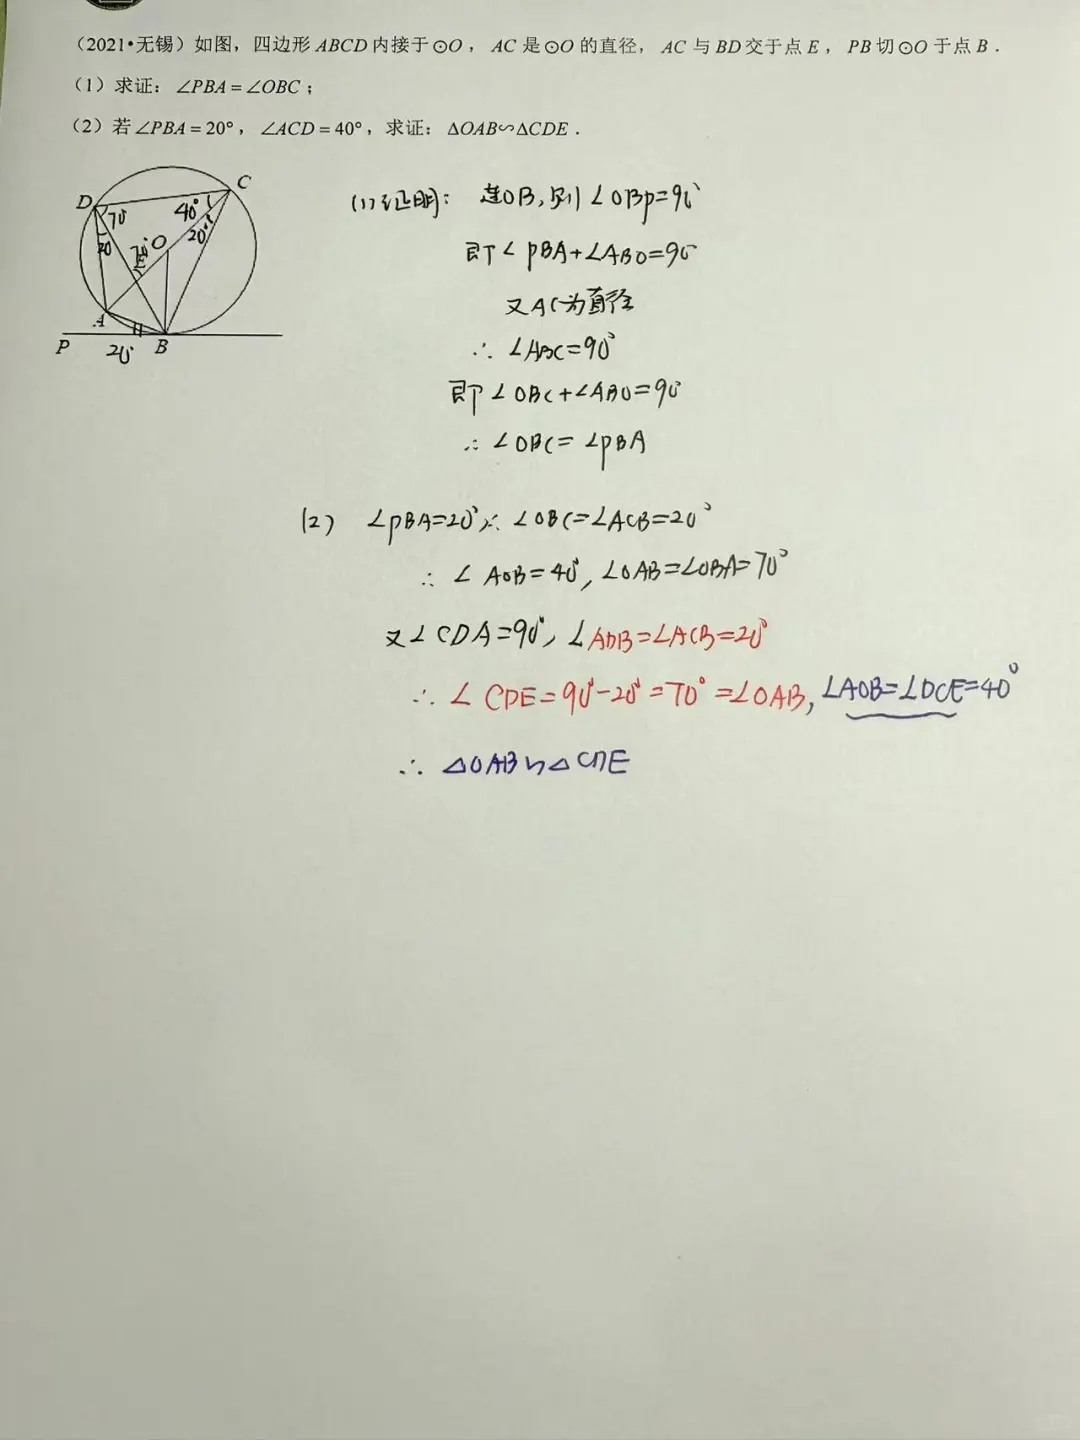 （2021•无锡）如图，四边形ABCD内接于⊙O，AC是⊙O的直径，AC与BD交于点E，PB切⊙O于点B．
（1）求证：∠PBA=∠OBC；
（2）若∠PBA=20°，∠ACD=40°，求证：△OAB∽△CDE．
C
D
70
40°
20°
O
20
70°
E
A
P
20°
B
(1)证明：连OB,则∠OBP=90°
即∠PBA+∠ABO=90
又AC为直径
∴∠ABC=90°
即∠OBC+∠ABO=90
∴∠OBC=∠PBA
(2) ∠PBA=20°∴∠OBC=∠ACB=20°
∴∠AOB=40°,∠OAB=∠OBA=70°
又∠CDA=90°,∠ADB=∠ACB=20°
∴∠CDE=90°-20°=70°=∠OAB,∠AOB=∠DCE=40°
∴△OAB∽△CDE